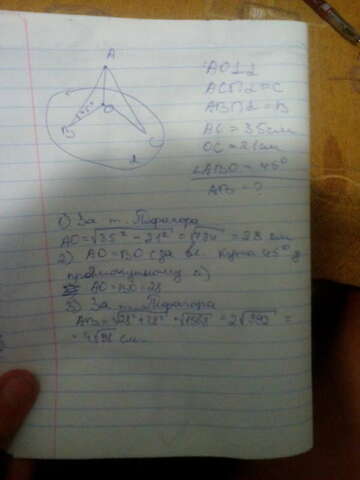 A
45°
O
B
C
α
AO⊥α
AC∩α=C
AB∩α=B
AC=35см
OC=21см
∠ABO=45°
AB=?
1) За т. Піфагора
AO=√35²-21²=√784=28 см
2) AO=BO (за вл. кута 45° у
прямокутному Δ)
AO=BO=28
3) За т. Піфагора
AB=√28²+28²=√1568=2√392=
=4√98 см